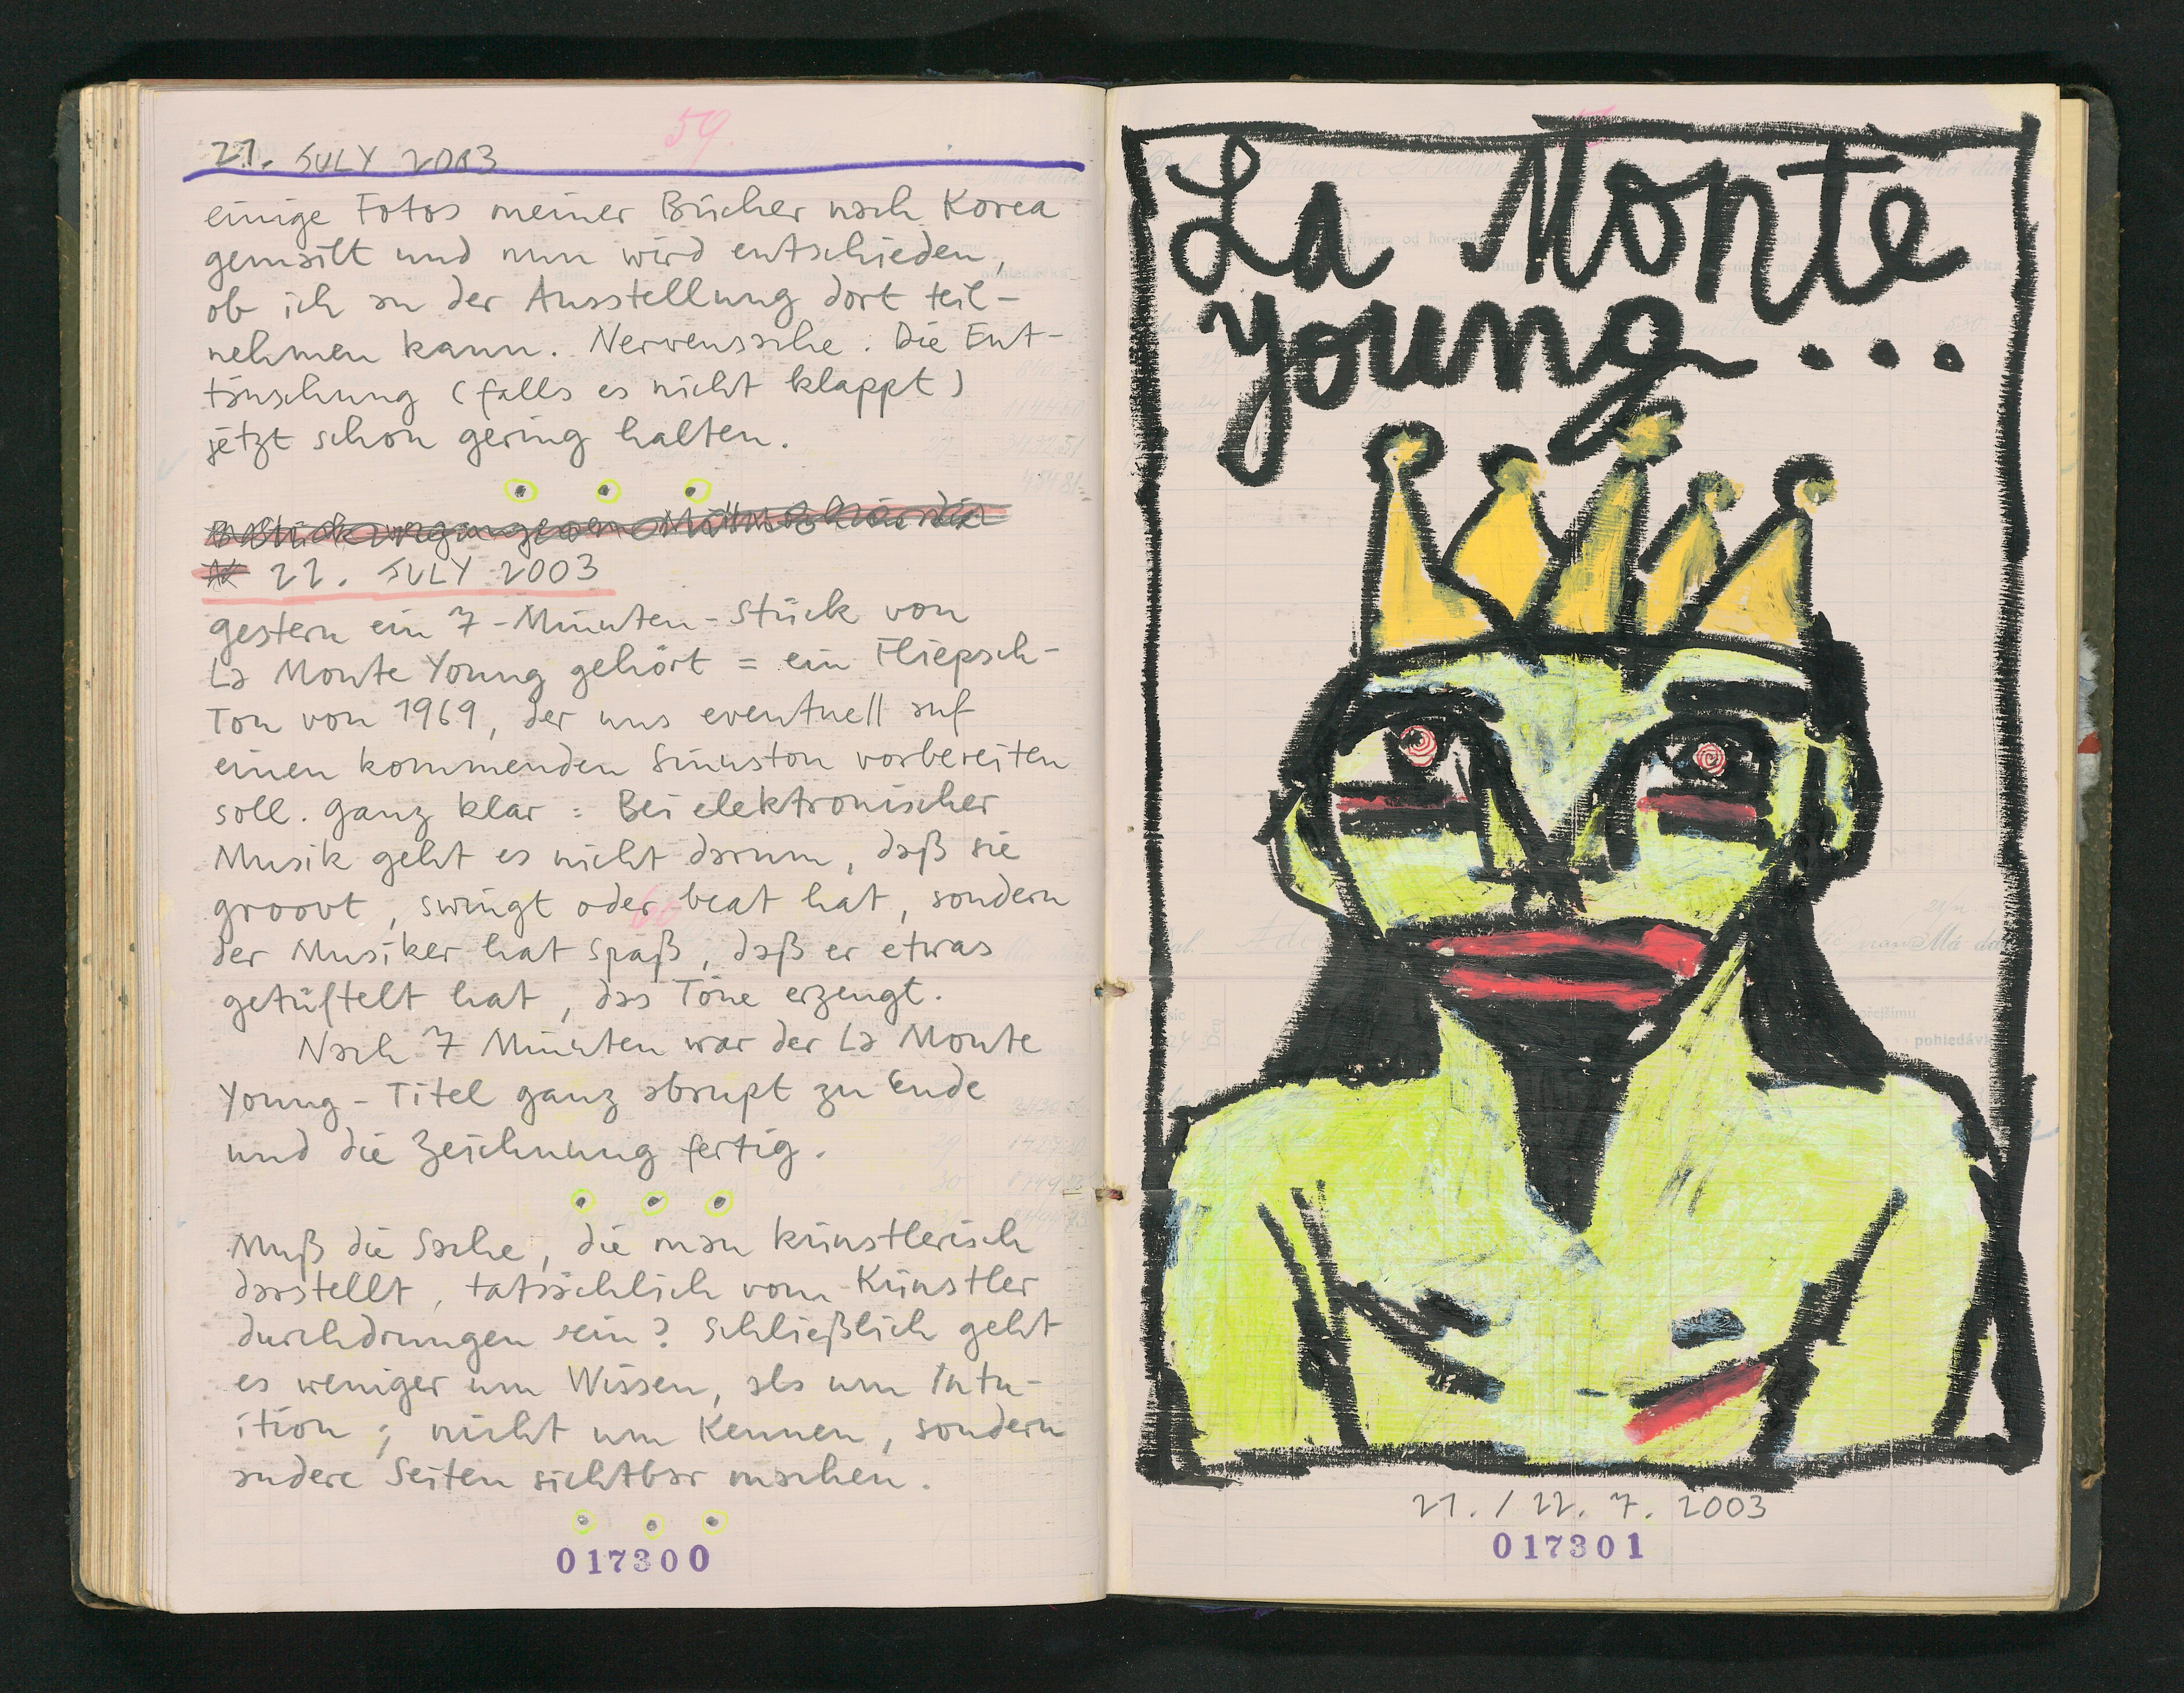 59.
21. JULY 2003
einige Fotos meiner Bücher nach Korea
gemailt und nun wird entschieden,
ob ich an der Ausstellung dort teil-
nehmen kann. Nervensache. Die Ent-
täuschung (falls es nicht klappt)
jetzt schon gering halten.
22. JULY 2003
gestern ein 7-Minuten-Stück von
La Monte Young gehört = ein Fliepsch-
Ton von 1969, der uns eventuell auf
einen kommenden Sinuston vorbereiten
soll. Ganz klar: Bei elektronischer
Musik geht es nicht darum, daß sie
groovt, swingt oder beat hat, sondern
der Musiker hat Spaß, daß er etwas
getüftelt hat, das Töne erzeugt.
Nach 7 Minuten war der La Monte
Young-Titel ganz abrupt zu Ende
und die Zeichnung fertig.
Muß die Sache, die man künstlerisch
darstellt, tatsächlich vom Künstler
durchdrungen sein? Schließlich geht
es weniger um Wissen, als um Intu-
ition; nicht um Kennen, sondern
andere Seiten sichtbar machen.
017300
La Monte
Young...
21./22. 7. 2003
017301